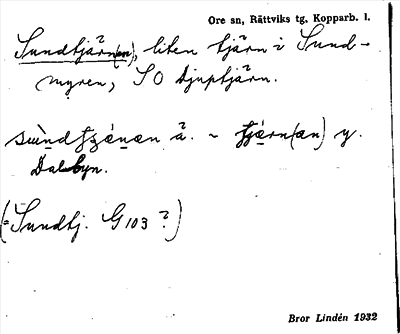 Ore sn, Rättviks tg, Kopparb. l.
Sundtjärn(en), liten tjärn i Sund-
myren, SO Djuptjärn.
ä. ~ y.
Dalbyn.
(= Sundtj. G 103 ?)
Bror Lindén 1932